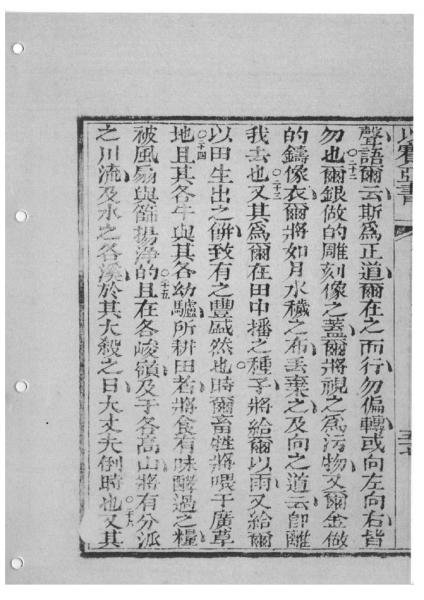 以賽亞書
聲語爾云斯為正道爾在之而行勿偏轉或向左向右皆
勿也○二十二爾銀做的雕刻像之蓋爾將視之為污物又爾金做
的鑄像衣爾將如月水穢之布丟棄之及向之道云即離
我去也○二十三又其為爾在田中播之種子將給爾以雨又給爾
以田生出之餅致有之豐盛然也時爾畜牲將喂于廣草
○二十四地且其各牛與其各幼驢所耕田者將食有味酵過之糧
被風扇與篩揚淨的○二十五且在各峻嶺及于各高山將有分派
之川流及水之各溪於其大殺之日大丈夫倒時也○二十六又其